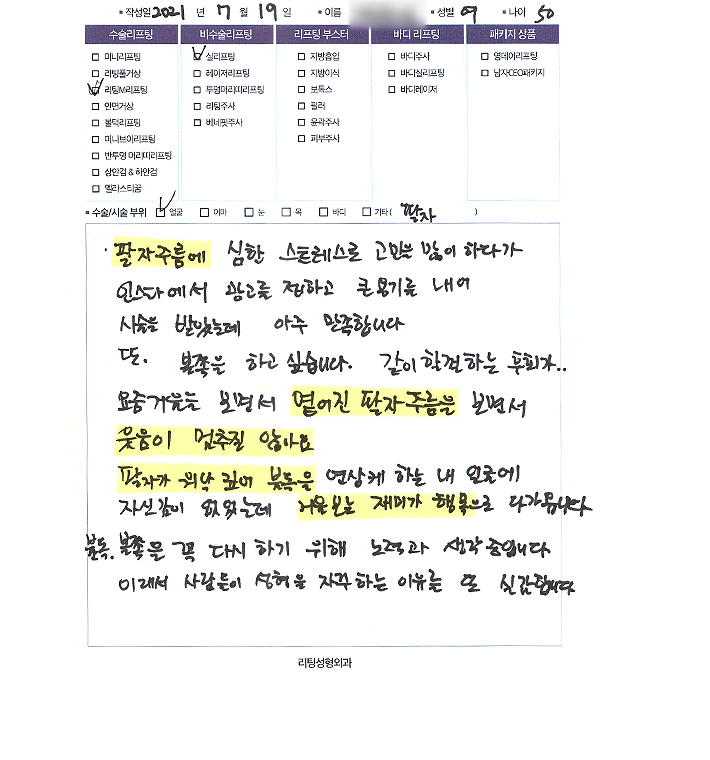 ▪작성일 2021 년 7 월 19 일 ▪이름 ▪성별 여 ▪나이 50
수술리프팅 비수술리프팅 리프팅 부스터 바디 리프팅 패키지 상품
□ 미니리프팅 □ 실리프팅 □ 지방흡입 □ 바디주사 □ 영데이리프팅
□ 리팅풀거상 □ 레이저리프팅 □ 지방이식 □ 바디실리프팅 □ 남자CEO패키지
□ 리팅M리프팅 □ 투명머리띠리프팅 □ 보톡스 □ 바디레이저
□ 안면거상 □ 리팅주사 □ 필러
□ 볼턱리프팅 □ 베네핏주사 □ 윤곽주사
□ 미니브이리프팅 □ 피부주사
□ 반투명 머리띠리프팅
□ 상안검 & 하안검
□ 엘라스티꿈
▪ 수술/시술 부위 □ 얼굴 □ 이마 □ 눈 □ 목 □ 바디 □ 기타 ( 팔자 )
· 팔자주름에 심한 스트레스로 고민을 많이 하다가
인스타에서 광고를 접하고 큰용기를 내어
시술을 받았는데 아주 만족합니다
또. 볼쪽을 하고 싶습니다. 같이할껄하는 후회가..
요즘거울을 보면서 옅어진 팔자주름을 보면서
웃음이 멈추질 않아요
팔자가 워낙 깊어 불독을 연상케 하는 내 얼굴에
자신감이 없었는데 거울보는 재미가 행복으로 다가옵니다
불독. 볼쪽을 꼭 다시하기 위해 노력과 생각중입니다
이래서 사람들이 성형을 자꾸하는 이유를 또 실감합니다
리팅성형외과